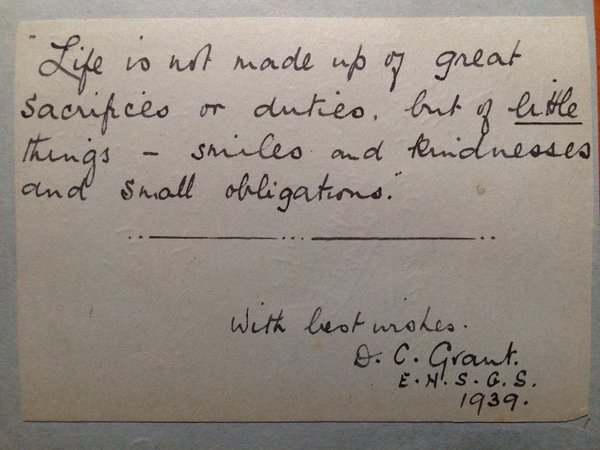 "Life is not made up of great
sacrifices or duties, but of little
things – smiles and kindnesses
and small obligations."
With best wishes.
D. C. Grant.
E. H. S. G. S.
1939.